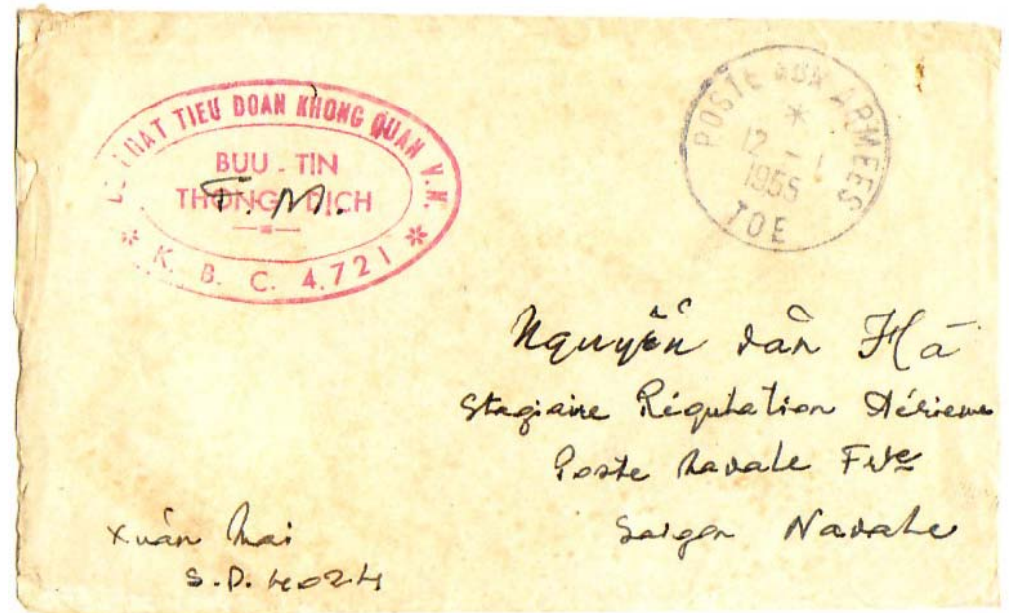 HAT TIEU DOAN KHONG QUAN V.N.
BUU - TIN
THONG DICH
F. M.
* K. B. C. 4.721 *
POSTE AUX ARMEES
*
12 - 1
1955
TOE
Nguyễn Văn Hà
Stagiaire Régulation Aérienne
Poste Navale Frse
Saigon Navale
Xuân Mai
S.P. 4024